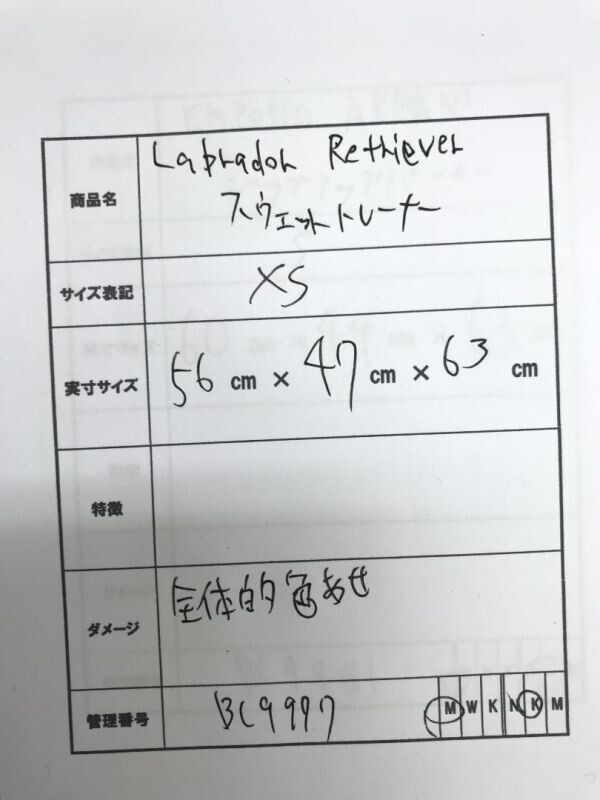 商品名
Labrador Retriever
スウェットトレーナー
サイズ表記
XS
実寸サイズ
56 cm × 47 cm × 63 cm
特徴
ダメージ
全体的色あせ
管理番号
BC9997
M W K N K M